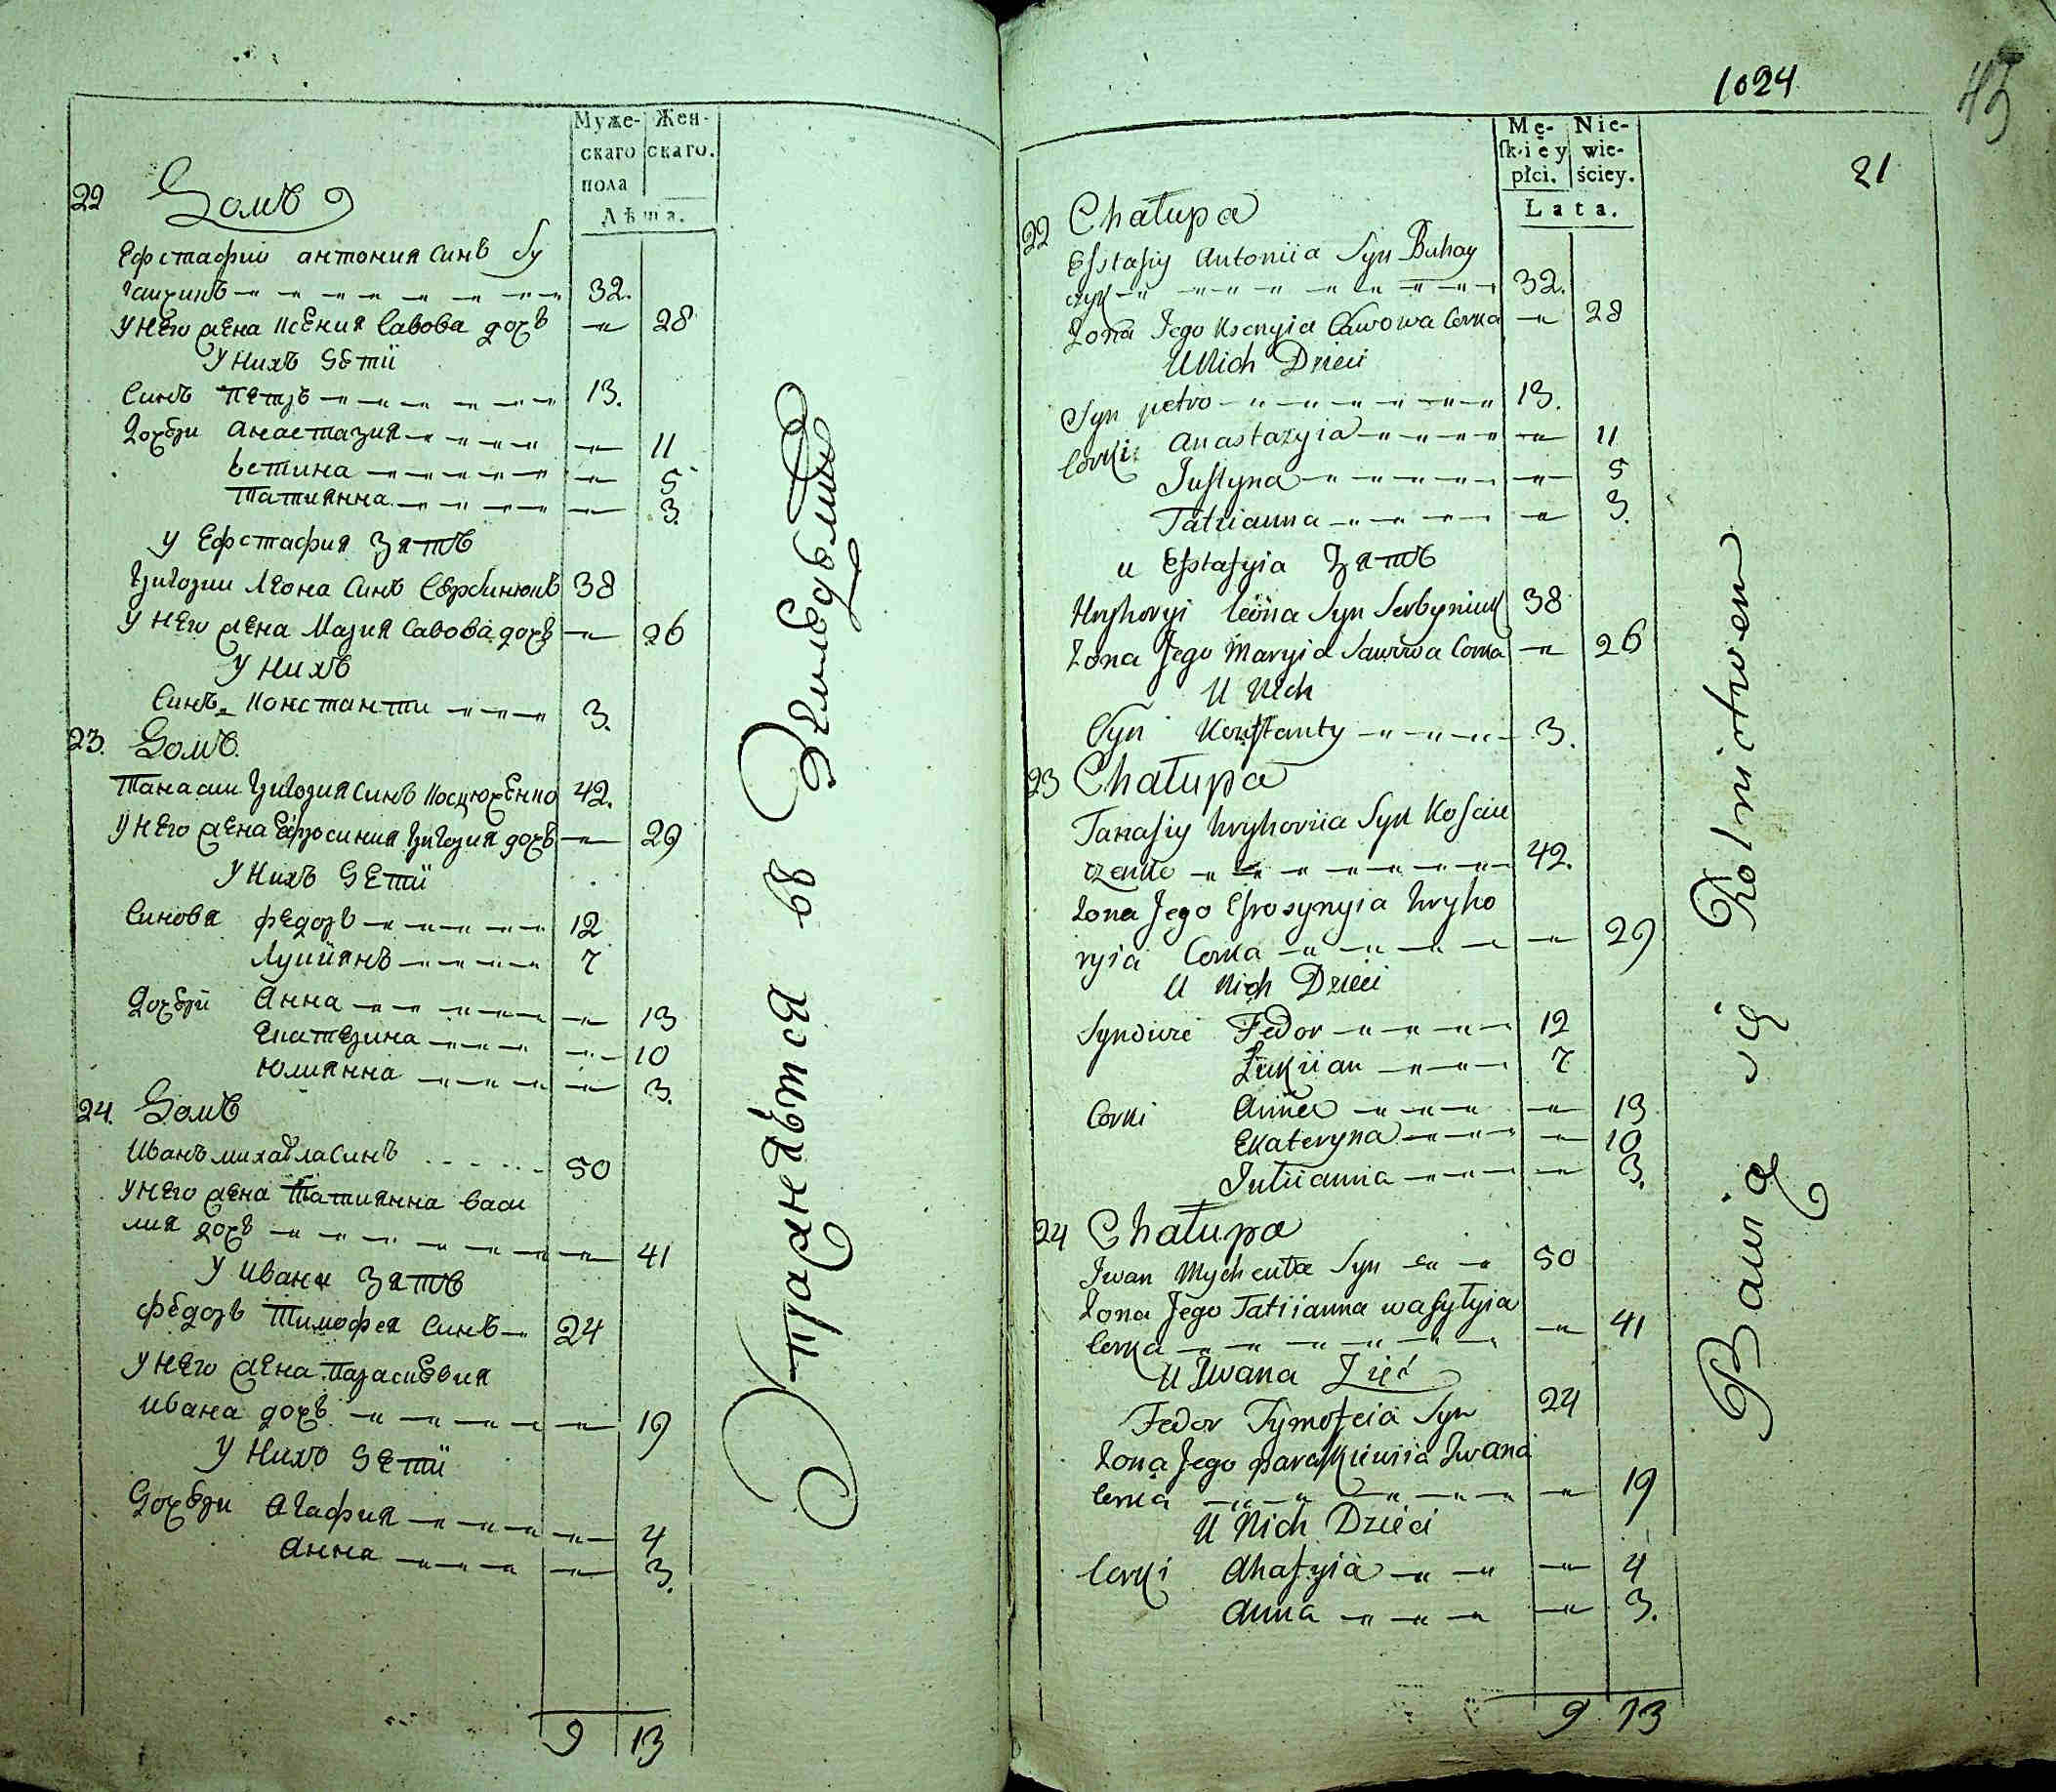 Муже-
скаго
пола
Жен-
скаго.
Лѣта.
22 Домъ 9
Ефстафии антония синъ Бу
гаичикъ 32.
У Него жена Ксения Савова дочь 28
У Нихъ Дети
Синъ Петръ 13.
Дочери Анастазия 11
Устина 5
Татиянна 3.
У Ефстафия Зять
Григории Леона Синъ Сербинюкъ 38
У Него жена Мария Савова дочь 26
У Нихъ
Синъ Константи 3.
23. Домъ.
Танасии Григория синъ Косцюченко 42.
У Него жена Ефросиния Григория дочь 29
У Нихъ Дети
Синовя Федоръ 12
Лукиянъ 7
Дочери Анна 13
Екатерина 10
Юлиянна 3.
24. Домъ
Иванъ михайла Синъ 50
У Него жена Татиянна Васи
лия дочь 41
У Ивана Зять
Федоръ Тимофея Синъ 24
У Него жена Параскевия
Ивана дочь 19
У Нихъ Дети
Дочери Агафия 4
Анна 3.
9 13
Упражняѣтся въ Земледѣлии
1024
45
21
Mę-
ſkiey
płci.
Nie-
wie-
ściey.
Lata.
22 Chałupa
Efstafiy Antoniia Syn Buhay
czyk 32.
Zona Jego Ksenyia Sawowa Corka 28
U Nich Dzieci
Syn petro 13.
Corki: Anastazyia 11
Justyna 5
Tatiianna 3.
u Efstafyia Зять
Hryhoryi Leona Syn Serbyniuk 38
Zona Jego Maryia Sawowa Corka 26
U Nich
Syn Konstanty 3.
23 Chałupa
Tanasiy hryhoriia Syn Kosciu
czenko 42.
Zona Jego Efrosynyia hryho
ryia Corka 29
U Nich Dzieci
Synowie Fedor 12
Łukiian 7
Corki Anna 13
Ekateryna 10
Juliianna 3.
24 Chałupa
Iwan Mychaiła Syn 50
Zona Jego Tatiianna wasylyia
Corka 41
U Iwana Zięć
Fedor Tymofeia Syn 24
Zona Jego paraskiewiia Iwana
Corka 19
U Nich Dzieci
Corki Ahafyia 4
Anna 3.
9 13
Bawią się Rolnictwem